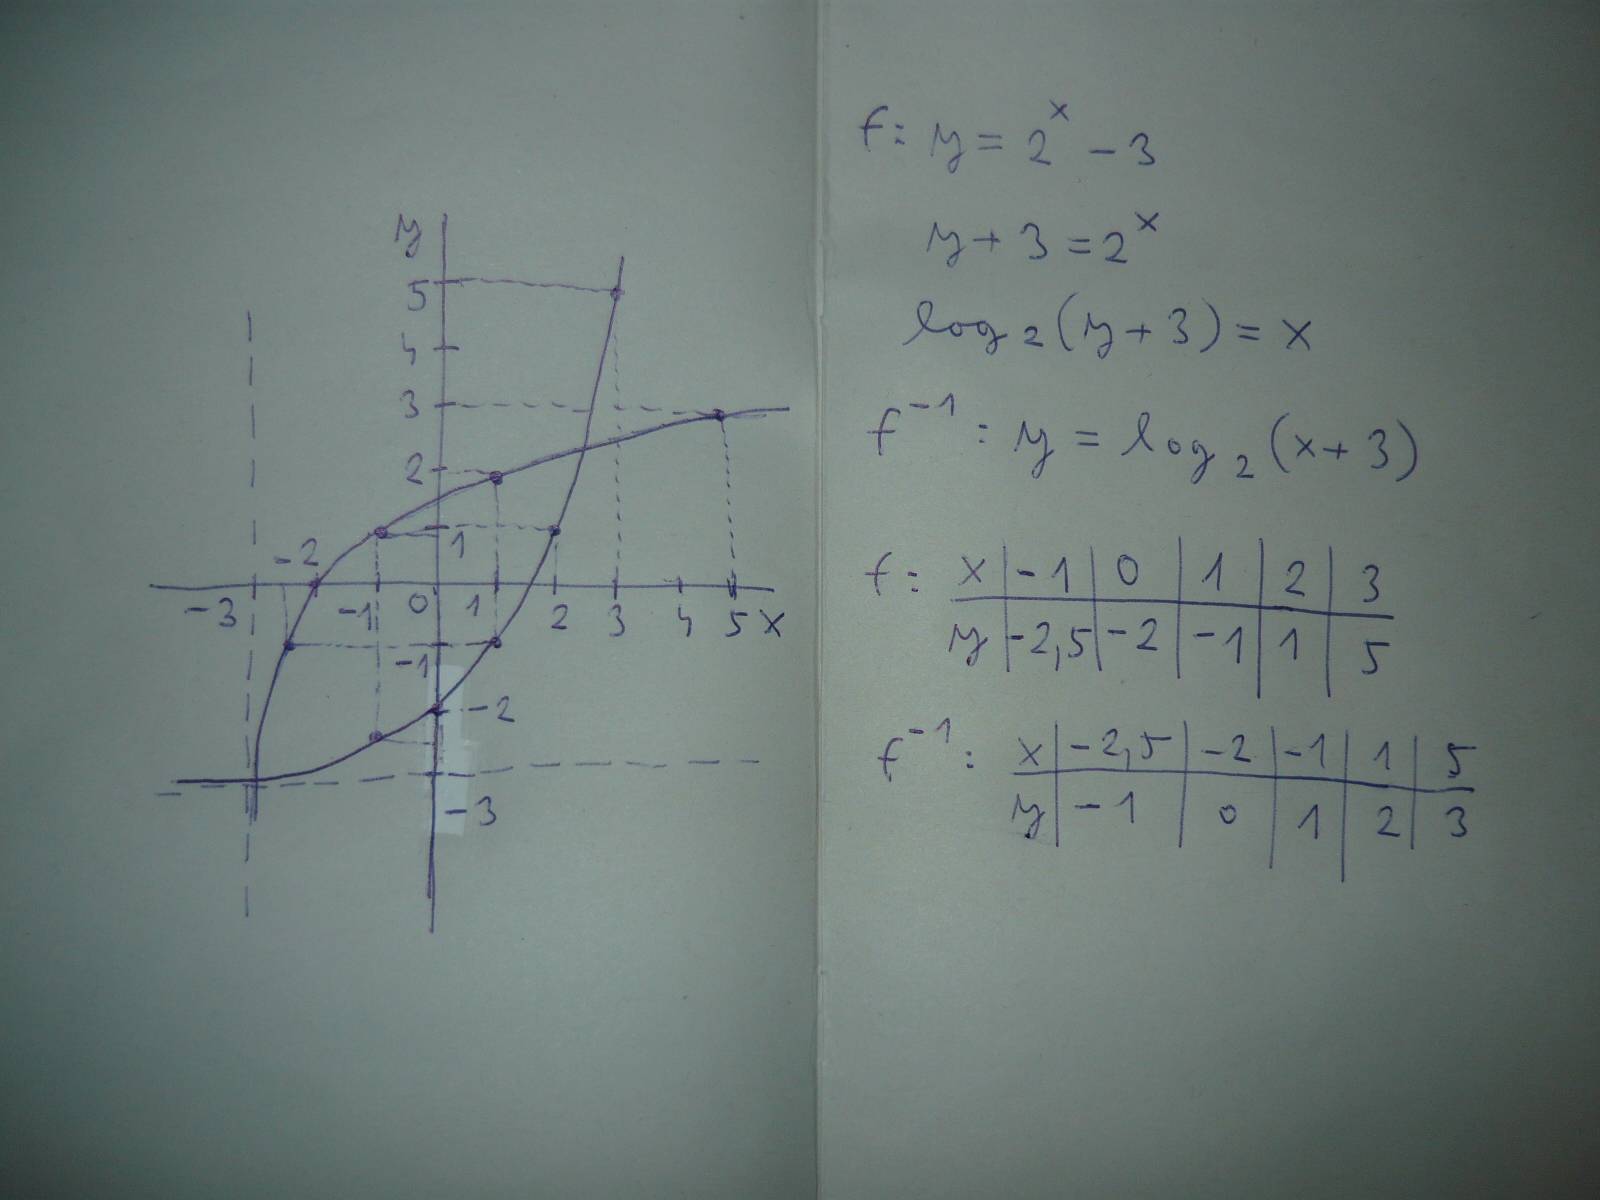 y
5
4
3
2
1
-2
-3 -1 0 1 2 3 4 5 x
-1
-2
-3
f: y = 2^x - 3
y + 3 = 2^x
log₂(y + 3) = x
f⁻¹: y = log₂(x + 3)
f: x | -1 | 0 | 1 | 2 | 3
y | -2,5 | -2 | -1 | 1 | 5
f⁻¹: x | -2,5 | -2 | -1 | 1 | 5
y | -1 | 0 | 1 | 2 | 3